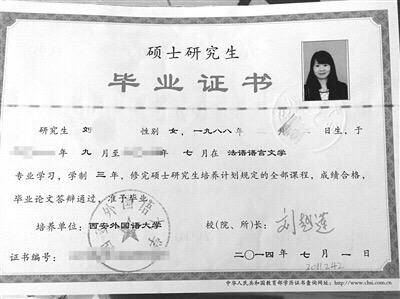 硕士研究生
毕业证书
研究生 刘 性别 女，一九八八年 月 日生，于
年 九 月至 年 七 月在 法语语言文学
专业学习，学制 三 年，修完硕士研究生培养计划规定的全部课程，成绩合格，
毕业论文答辩通过，准予毕业。
培养单位：西安外国语大学 校(院、所)长：
证书编号： 二〇一四年 七 月 一 日
中华人民共和国教育部学历证书查询网址：http://www.chsi.com.cn